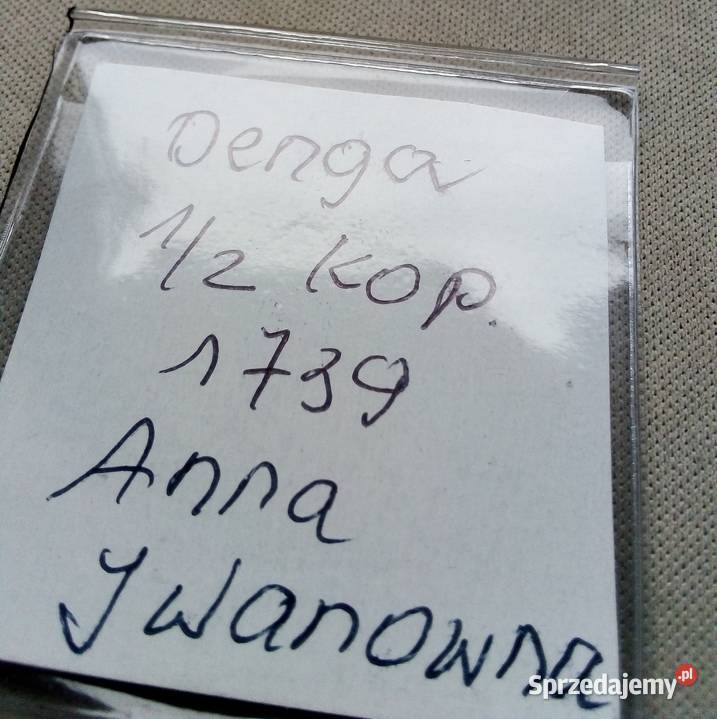 Denga
1/2 kop.
1739
Anna
Jwanowna
Sprzedajemy.pl